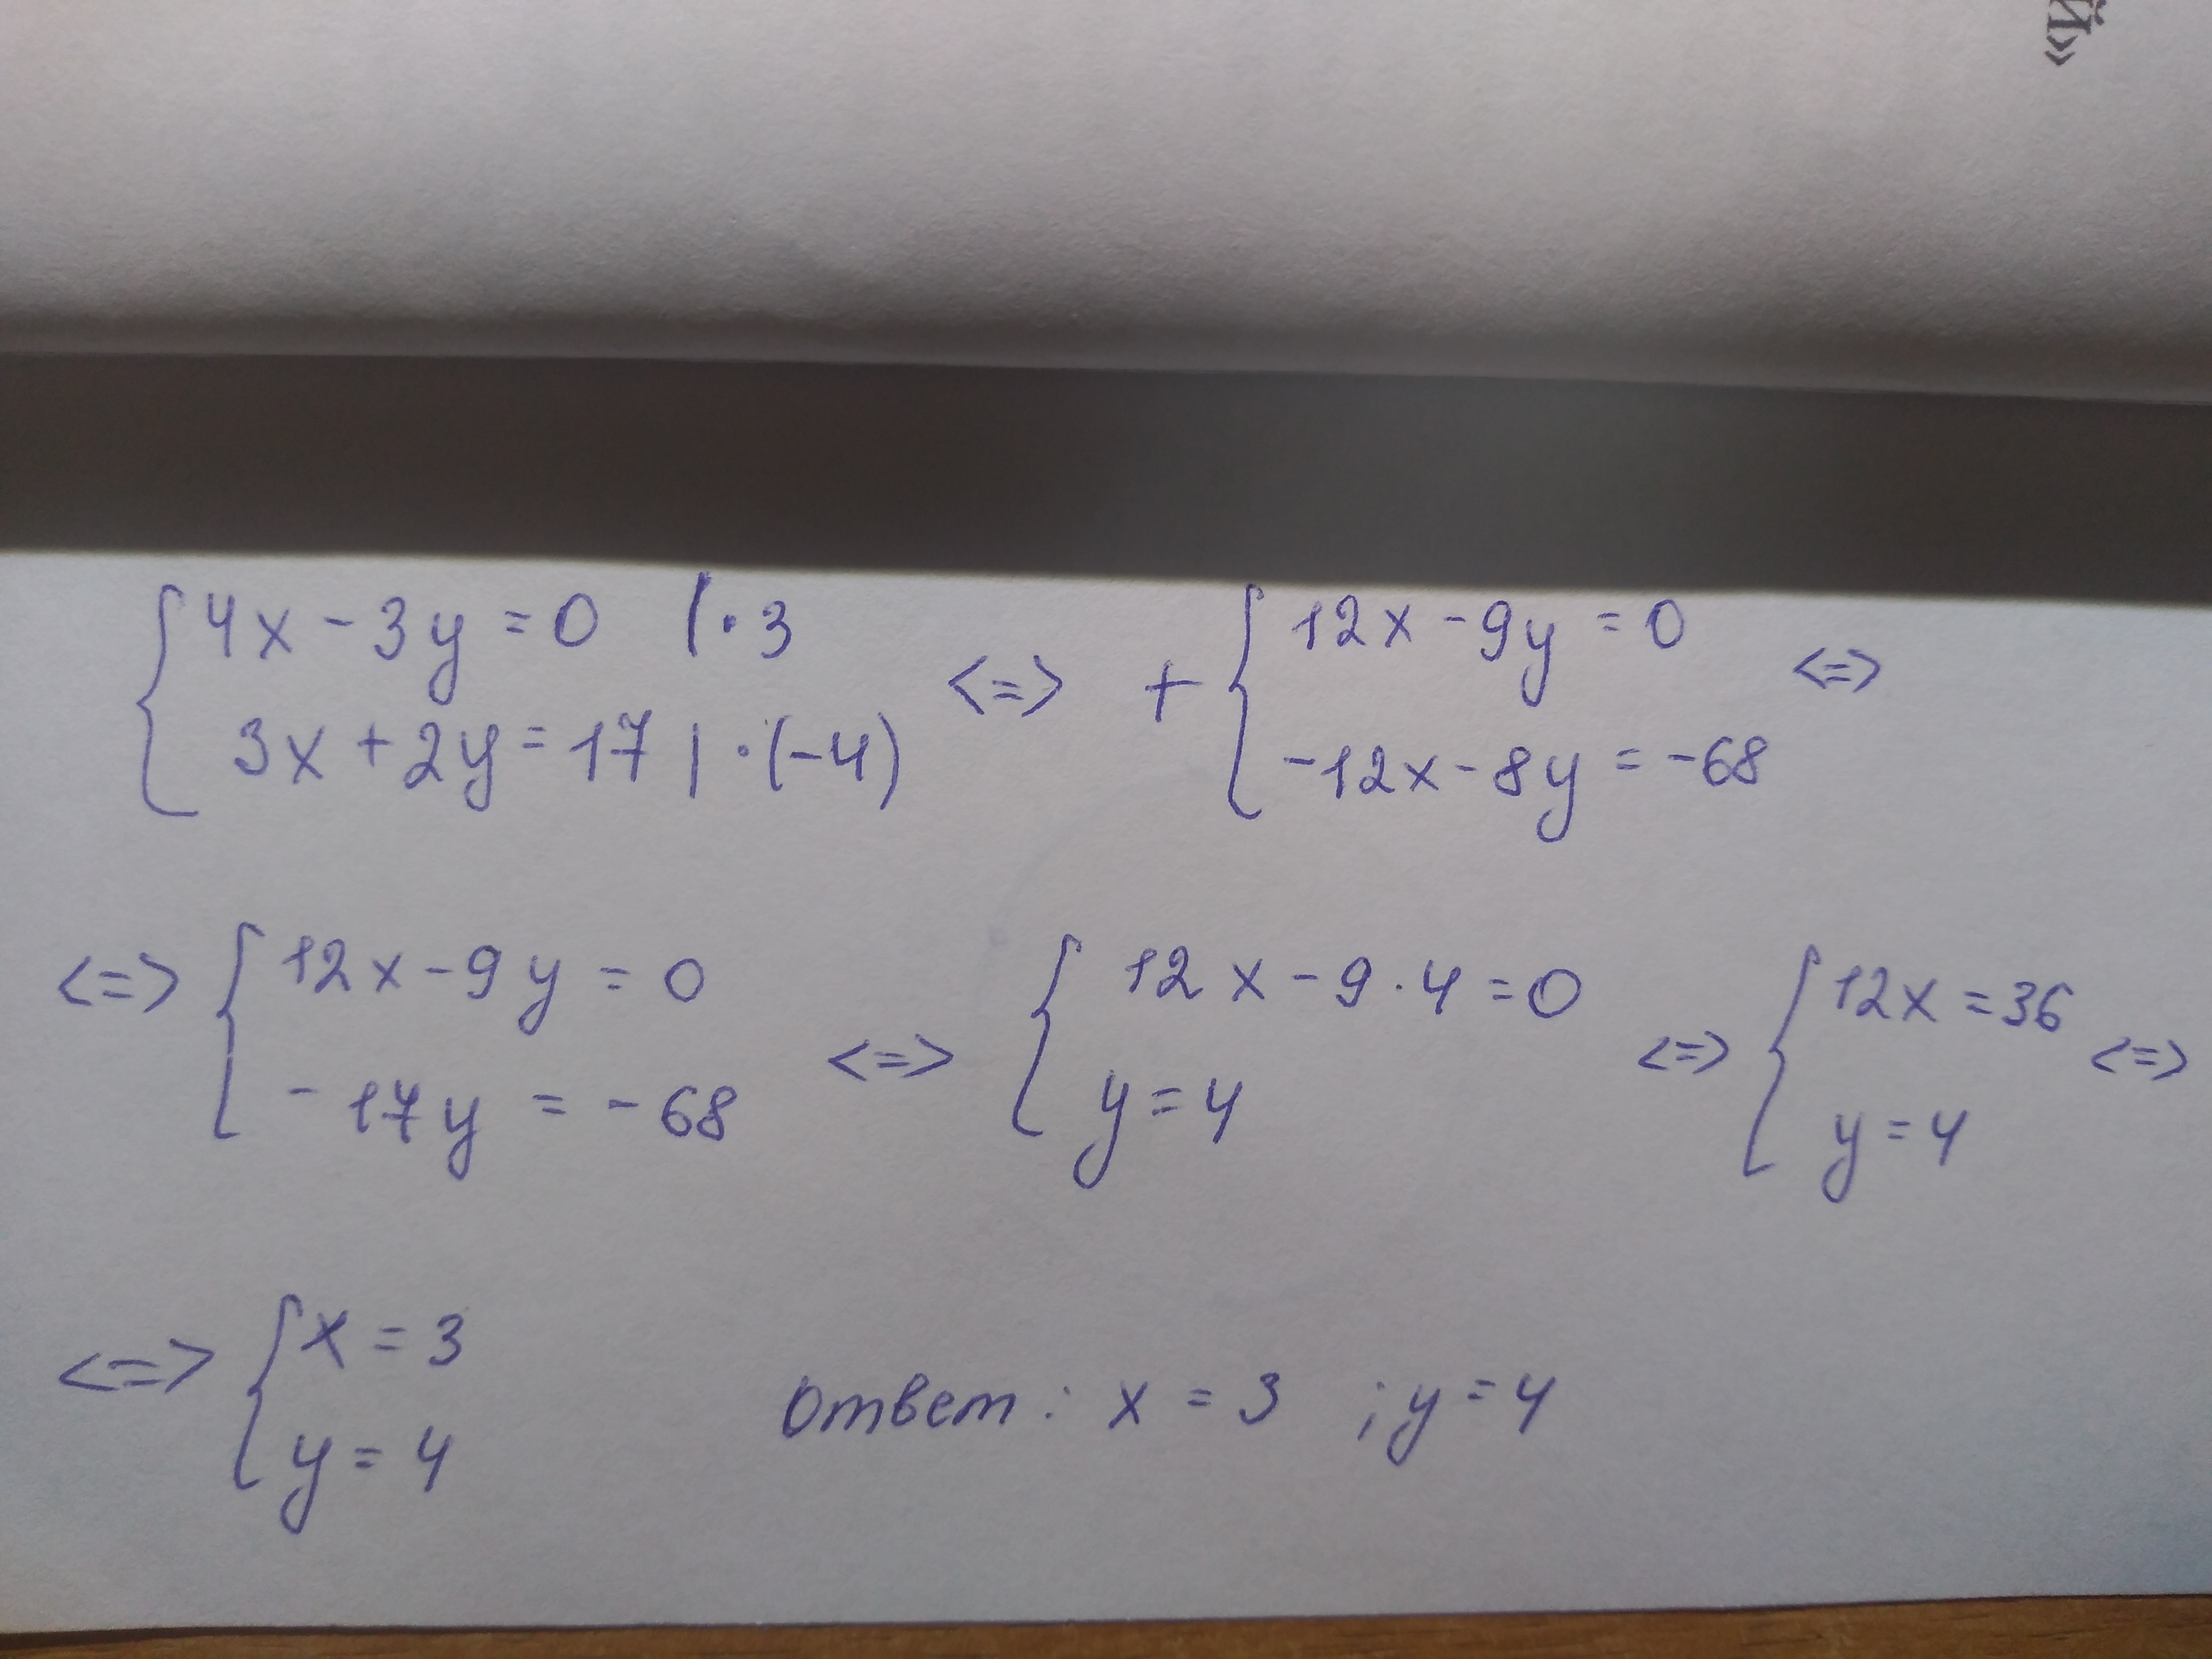 й»
{4x - 3y = 0 | · 3
{3x + 2y = 17 | · (-4)
<=> + {12x - 9y = 0
{-12x - 8y = -68 <=>
<=> {12x - 9y = 0
{-17y = -68
<=> {12x - 9 · 4 = 0
{y = 4
<=> {12x = 36
{y = 4 <=>
<=> {x = 3
{y = 4
Ответ: x = 3 ; y = 4